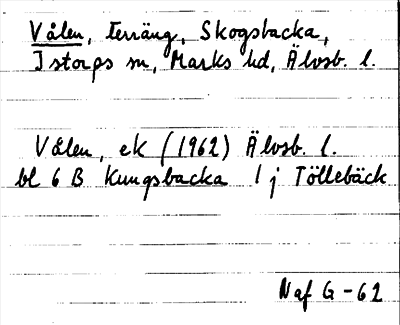 Vålen, Terräng, Skogsbacka,
Istorps sn, Marks hd, Älvsb. l.
Vålen, ek (1962) Älvsb. l.
bl 6 B Kungsbacka 1 j Töllebäck
Naf G-62